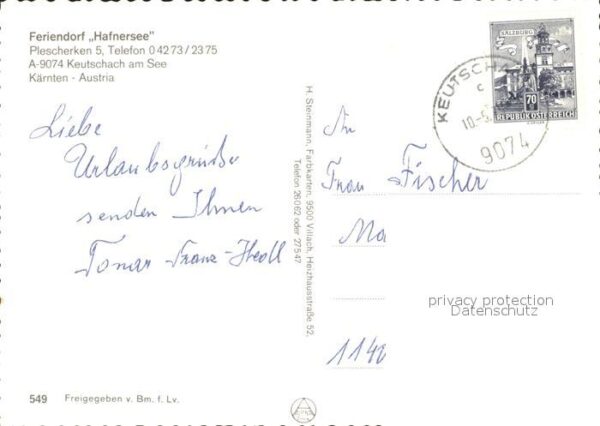 Feriendorf „Hafnersee"
Plescherken 5, Telefon 0 42 73 / 23 75
A-9074 Keutschach am See
Kärnten - Austria
SALZBURG
70
REPUBLIK ÖSTERREICH
KEUTSCHA
c
10.-
9074
Liebe
Urlaubsgrüße
senden Ihnen
Franz
H. Steinmann, Farbkarten, 9500 Villach, Heizhausstraße 52,
Telefon 26062 oder 27547
An
Frau Fischer
Ma
114
privacy protection
Datenschutz
549 Freigegeben v. Bm. f. Lv.